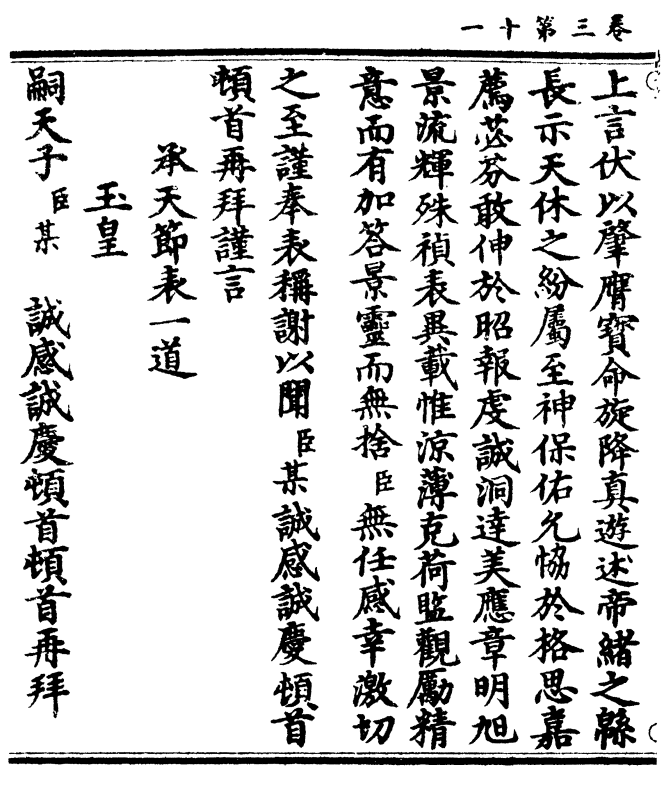 卷三第十一
上言伏以肇膺寶命旋降真遊述帝緒之緜
長示天休之紛屬至神保佑允恊於格思嘉
薦苾芬敢伸於昭報虔誠洞達美應章明旭
景流輝殊禎表異載惟涼薄克荷監觀勵精
意而有加答景靈而無捨臣無任感幸激切
之至謹奉表稱謝以聞臣某誠感誠慶頓首
頓首再拜謹言
承天節表一道
玉皇
嗣天子臣某 誠感誠慶頓首頓首再拜